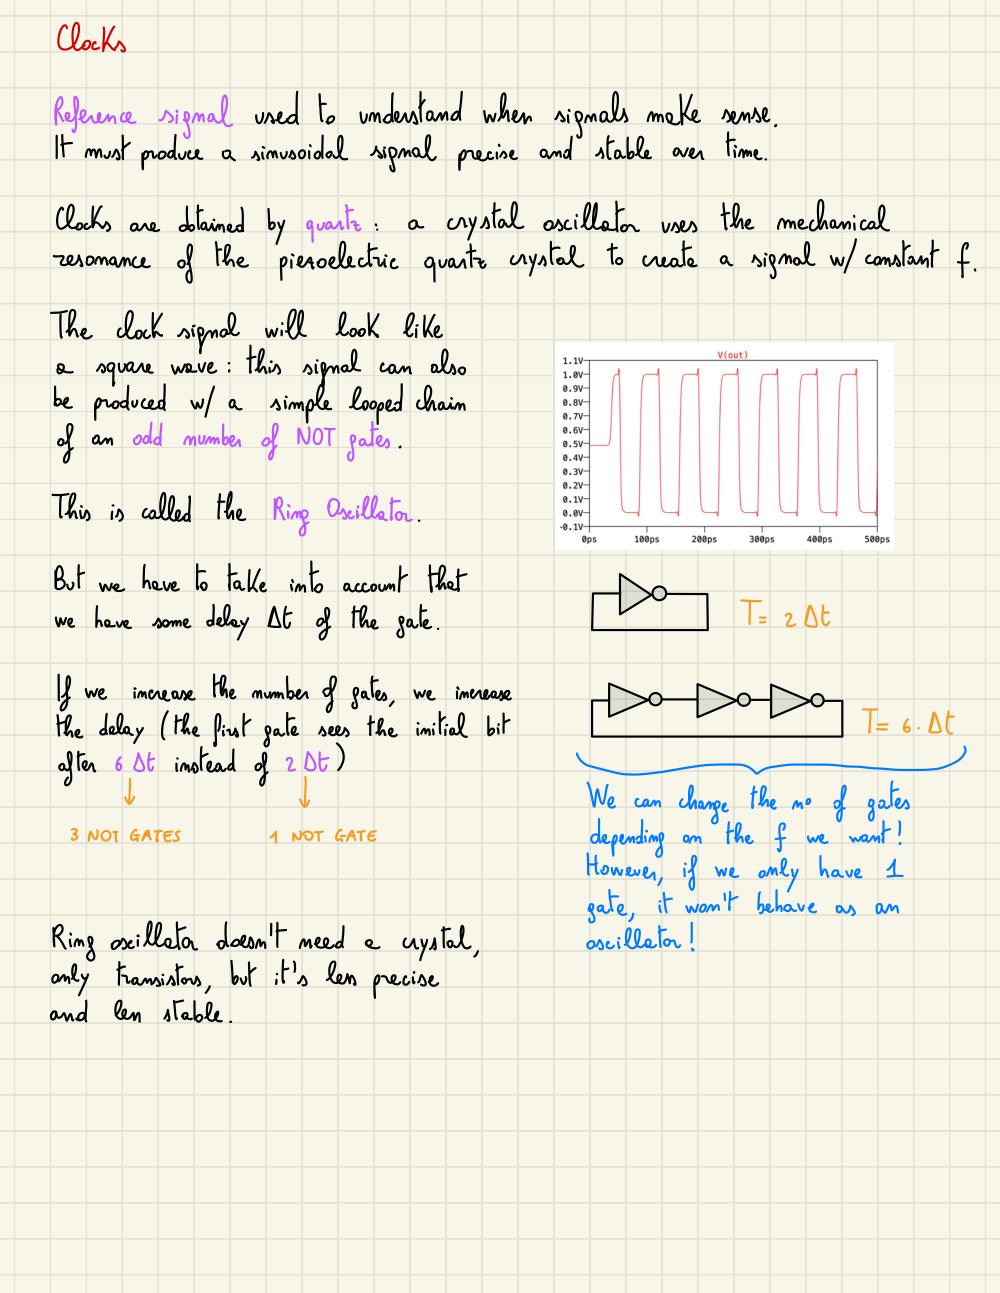 Clocks
Reference signal used to understand when signals make sense.
It must produce a sinusoidal signal precise and stable over time.
Clocks are obtained by quartz: a crystal oscillator uses the mechanical
resonance of the piezoelectric quartz crystal to create a signal w/ constant f.
The clock signal will look like
a square wave: this signal can also
be produced w/ a simple looped chain
of an odd number of NOT gates.
This is called the Ring Oscillator.
V(out)
1.1V
1.0V
0.9V
0.8V
0.7V
0.6V
0.5V
0.4V
0.3V
0.2V
0.1V
0.0V
-0.1V
0ps 100ps 200ps 300ps 400ps 500ps
But we have to take into account that
we have some delay Δt of the gate.
T= 2 Δt
If we increase the number of gates, we increase
the delay (the first gate sees the initial bit
after 6 Δt instead of 2 Δt)
3 NOT GATES 1 NOT GATE
T= 6 · Δt
We can change the n° of gates
depending on the f we want!
However, if we only have 1
gate, it won't behave as an
oscillator!
Ring oscillator doesn't need a crystal,
only transistors, but it's less precise
and less stable.